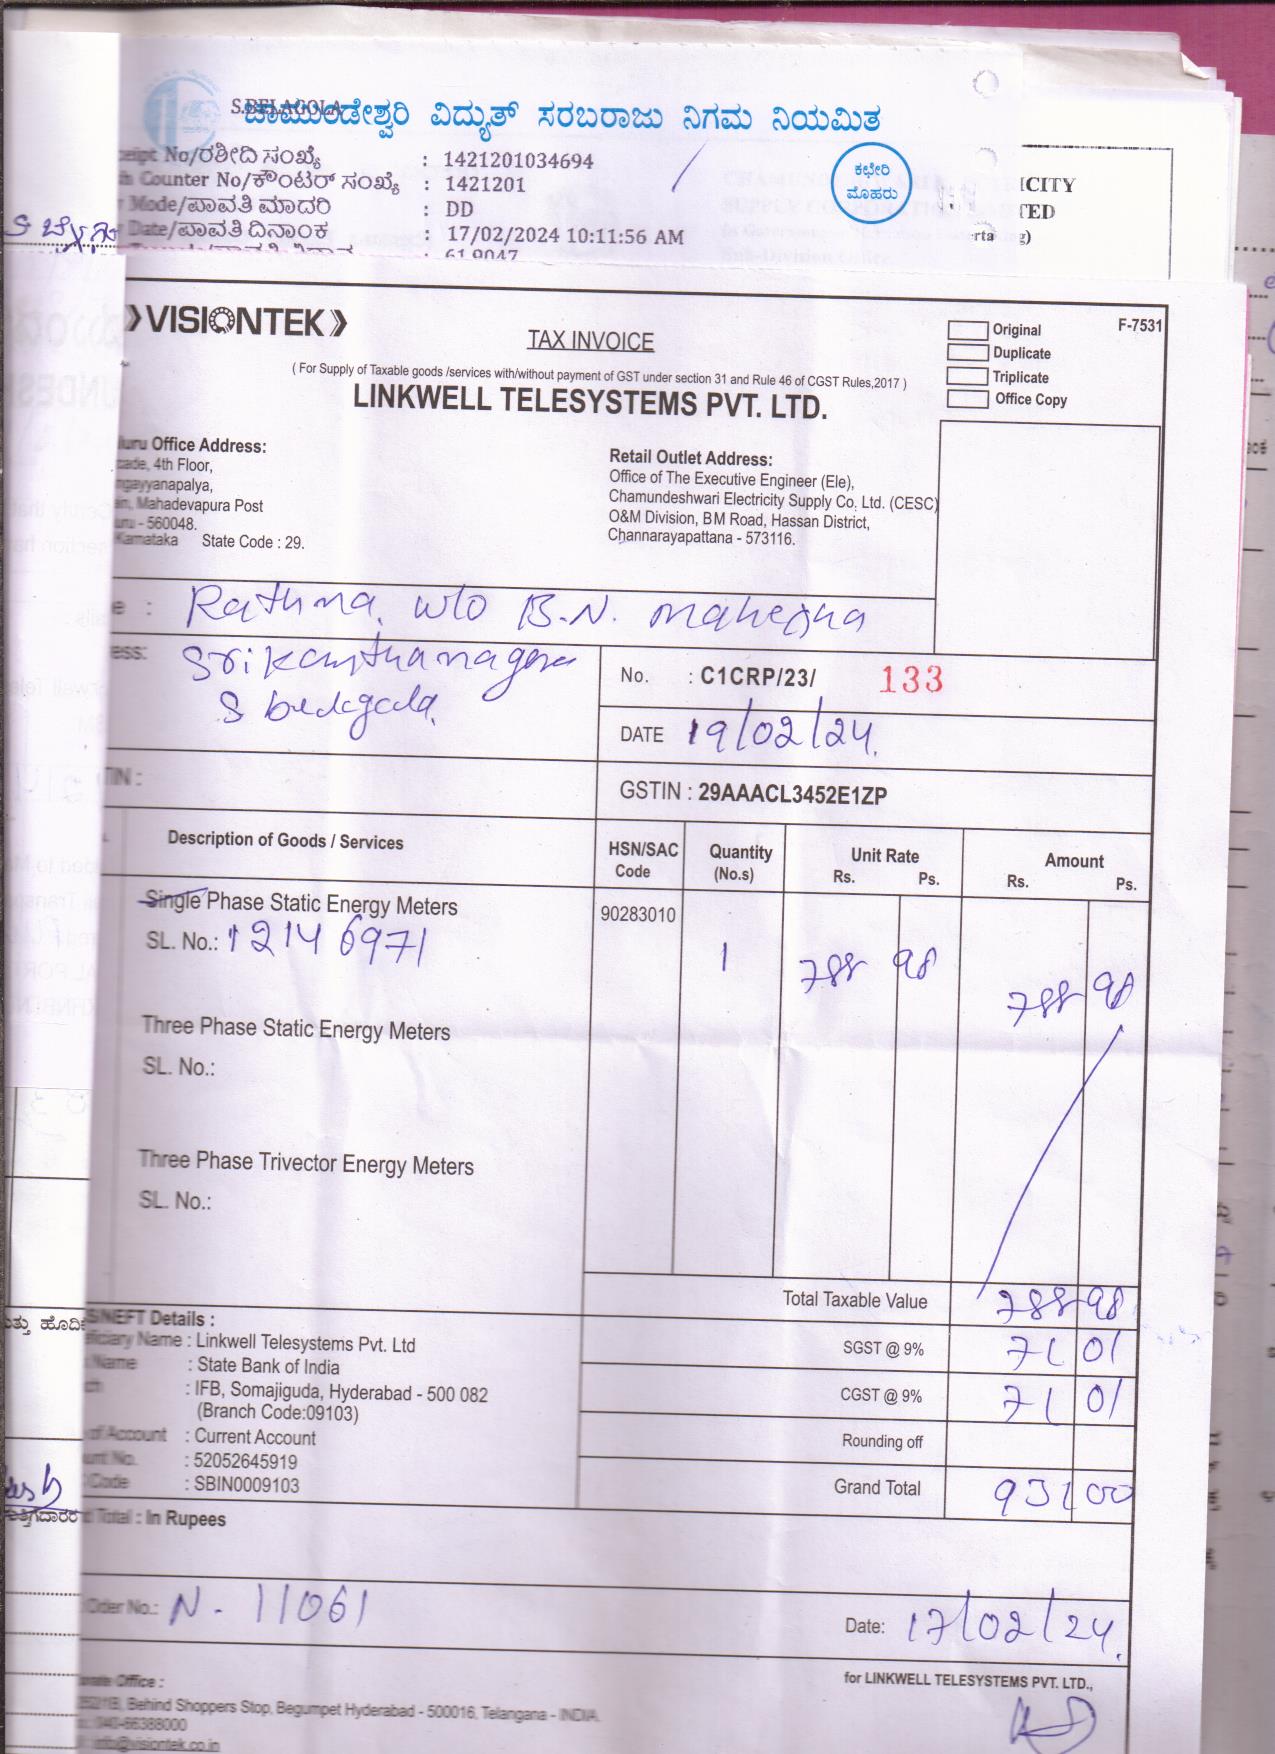 S.BELAGOLA
ಚಾಮುಂಡೇಶ್ವರಿ ವಿದ್ಯುತ್ ಸರಬರಾಜು ನಿಗಮ ನಿಯಮಿತ
No/ರಶೀದಿ ಸಂಖ್ಯೆ : 1421201034694
Counter No/ಕೌಂಟರ್ ಸಂಖ್ಯೆ : 1421201
Mode/ಪಾವತಿ ಮಾದರಿ : DD
Date/ಪಾವತಿ ದಿನಾಂಕ : 17/02/2024 10:11:56 AM
: 61.9047
ಕಛೇರಿ
ಮೊಹರು
VISIONTEK
TAX INVOICE
Original
F-7531
Duplicate
Triplicate
Office Copy
( For Supply of Taxable goods /services with/without payment of GST under section 31 and Rule 46 of CGST Rules,2017 )
LINKWELL TELESYSTEMS PVT. LTD.
Office Address:
4th Floor,
Mahadevapura Post
- 560048.
Karnataka State Code : 29.
Retail Outlet Address:
Office of The Executive Engineer (Ele),
Chamundeshwari Electricity Supply Co, Ltd. (CESC)
O&M Division, BM Road, Hassan District,
Channarayapattana - 573116.
: Rathna w/o B.N.
No. : C1CRP/23/ 133
DATE 19/02/24.
GSTIN : 29AAACL3452E1ZP
Description of Goods / Services
HSN/SAC Code
Quantity (No.s)
Unit Rate
Rs. Ps.
Amount
Rs. Ps.
Single Phase Static Energy Meters 90283010
SL. No.: 12146971 1 788 98 788 98
Three Phase Static Energy Meters
SL. No.:
Three Phase Trivector Energy Meters
SL. No.:
Total Taxable Value 788 98
SGST @ 9% 71 01
CGST @ 9% 71 01
Rounding off
Grand Total 931 00
NEFT Details :
Name : Linkwell Telesystems Pvt. Ltd
Name : State Bank of India
: IFB, Somajiguda, Hyderabad - 500 082
(Branch Code:09103)
of Account : Current Account
No. : 52052645919
Code : SBIN0009103
Total : In Rupees
Order No.: N - 11061
Date: 17/02/24.
for LINKWELL TELESYSTEMS PVT. LTD.,
Office :
Behind Shoppers Stop, Begumpet Hyderabad - 500016, Telangana - INDIA.
: 040-66388000
info@visiontek.co.in